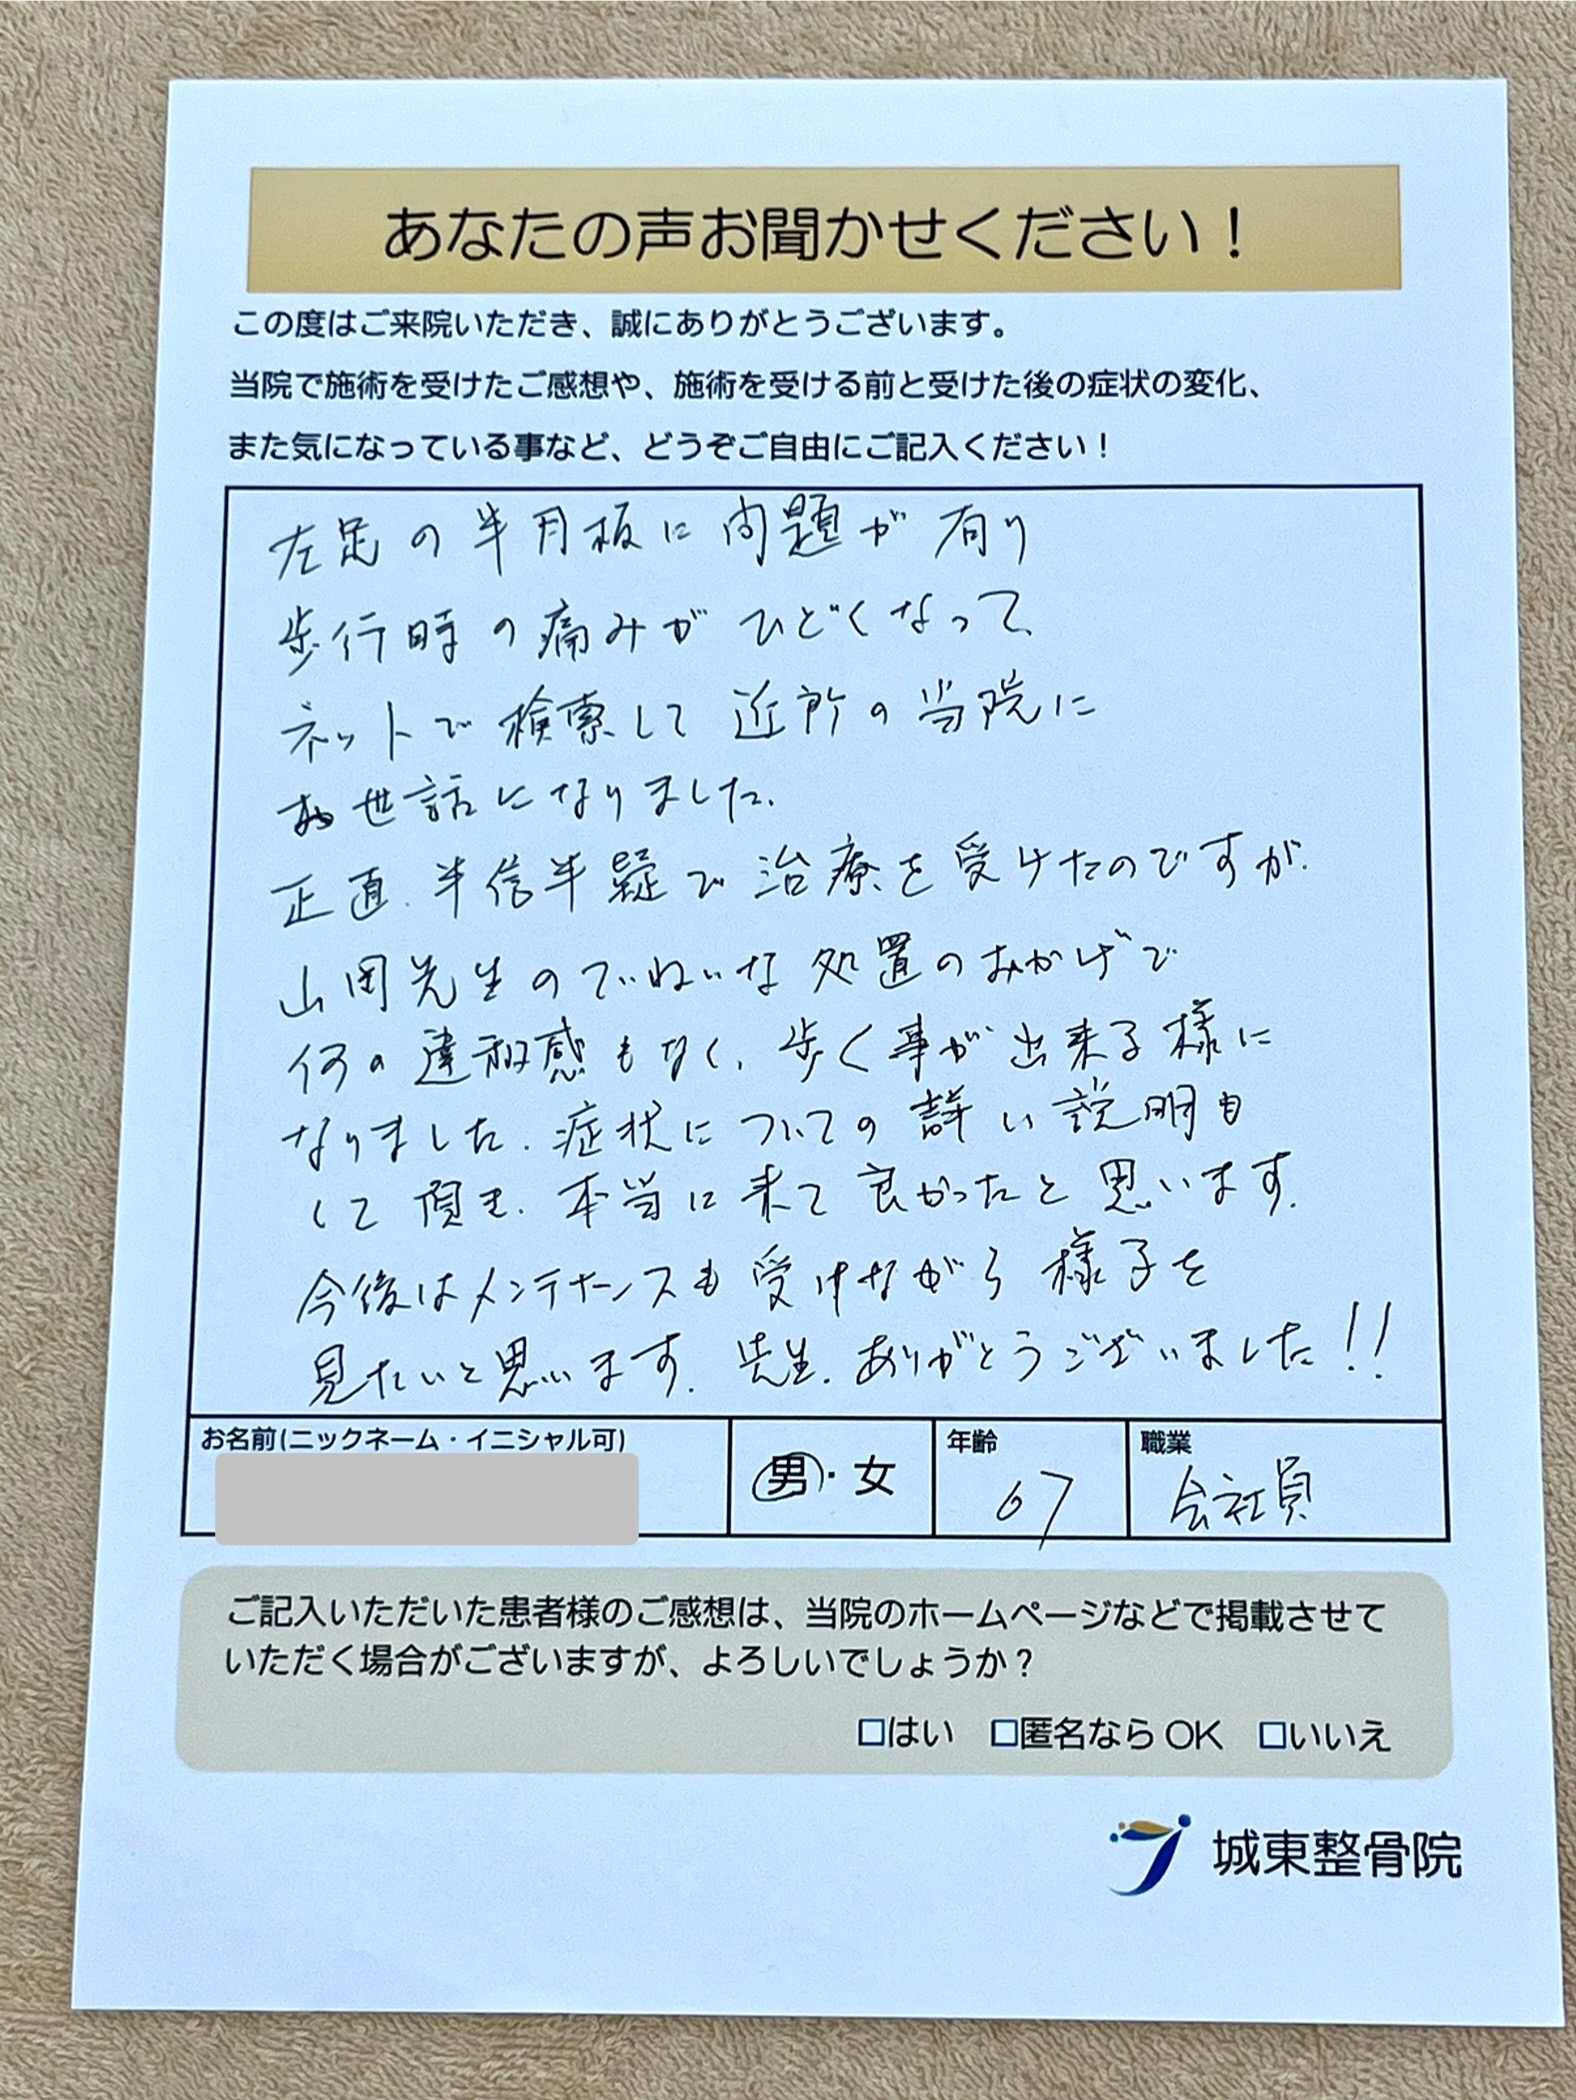 あなたの声お聞かせください！
この度はご来院いただき、誠にありがとうございます。
当院で施術を受けたご感想や、施術を受ける前と受けた後の症状の変化、
また気になっている事など、どうぞご自由にご記入ください！
左足の半月板に問題が有り
歩行時の痛みがひどくなって、
ネットで検索して近所の当院に
お世話になりました。
正直、半信半疑で治療を受けたのですが、
山岡先生のていねいな処置のおかげで
何の違和感もなく、歩く事が出来る様に
なりました。症状についての詳い説明も
して頂き、本当に来て良かったと思います。
今後はメンテナンスも受けながら様子を
見たいと思います。先生、ありがとうございました!!
お名前(ニックネーム・イニシャル可)
男・女
年齢
67
職業
会社員
ご記入いただいた患者様のご感想は、当院のホームページなどで掲載させて
いただく場合がございますが、よろしいでしょうか？
□はい □匿名なら OK □いいえ
城東整骨院